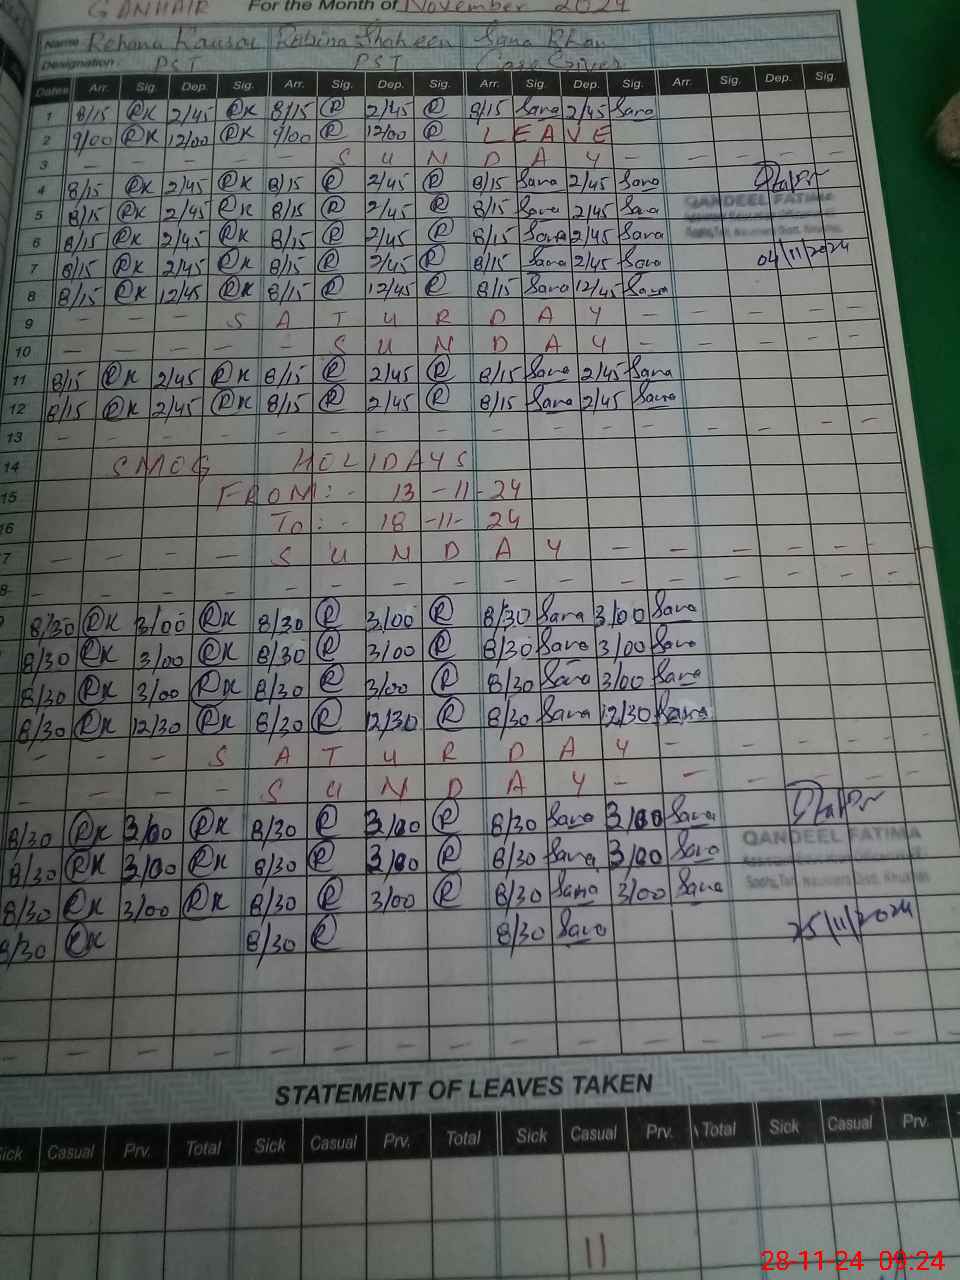 GANHAIR For the Month of November 2024
Name Rehana Kausar Rubina Shaheen Sana Khan
Designation: PST PST Care Giver
Dates Arr. Sig. Dep. Sig. Arr. Sig. Dep. Sig. Arr. Sig. Dep. Sig. Arr. Sig. Dep. Sig.
1 8/15 RK 2/45 RK 8/15 R 2/45 R 8/15 Sana 2/45 Sana
2 9/00 RK 12/00 RK 9/00 R 12/00 R LEAVE
3 - - - - - S U N D A Y -
4 8/15 RK 2/45 RK 8/15 R 2/45 R 8/15 Sana 2/45 Sana
QANDEEL FATIMA
5 8/15 RK 2/45 RK 8/15 R 2/45 R 8/15 Sana 2/45 Sana
6 8/15 RK 2/45 RK 8/15 R 2/45 R 8/15 Sana 2/45 Sana
7 8/15 RK 2/45 RK 8/15 R 2/45 R 8/15 Sana 2/45 Sana 04/11/2024
8 8/15 RK 12/45 RK 8/15 R 12/45 R 8/15 Sana 12/45 Sana
9 - - - S A T U R D A Y - - - - -
10 - - - - - S U N D A Y - - - - -
11 8/15 RK 2/45 RK 8/15 R 2/45 R 8/15 Sana 2/45 Sana
12 8/15 RK 2/45 RK 8/15 R 2/45 R 8/15 Sana 2/45 Sana
13 - - - - - - - - - - - - - - - -
14 SMOG HOLIDAYS
15 FROM:- 13-11-24
16 To:- 18-11-24
17 - - - - S U N D A Y - - - - - -
18 - - - - - - - - - - - - - - - -
8/30 RK 3/00 RK 8/30 R 3/00 R 8/30 Sana 3/00 Sana
8/30 RK 3/00 RK 8/30 R 3/00 R 8/30 Sana 3/00 Sana
8/30 RK 3/00 RK 8/30 R 3/00 R 8/30 Sana 3/00 Sana
8/30 RK 12/30 RK 8/30 R 12/30 R 8/30 Sana 12/30 Sana
- - - S A T U R D A Y - - - - -
- - - - S U N D A Y - - - - - -
8/30 RK 3/00 RK 8/30 R 3/00 R 8/30 Sana 3/00 Sana
QANDEEL FATIMA
8/30 RK 3/00 RK 8/30 R 3/00 R 8/30 Sana 3/00 Sana
8/30 RK 3/00 RK 8/30 R 3/00 R 8/30 Sana 3/00 Sana
8/30 RK 8/30 R 8/30 Sana 25/11/2024
- - - - - - - - - - - - - - - -
STATEMENT OF LEAVES TAKEN
Sick Casual Prv. Total Sick Casual Prv. Total Sick Casual Prv. Total Sick Casual Prv.
11
28-11-24 09:24